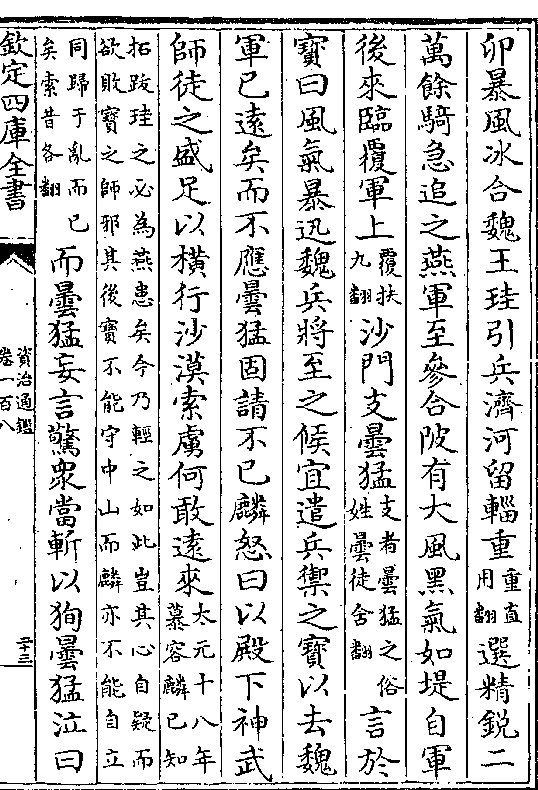 卯暴風冰合魏王珪引兵濟河留輜重重直用翻選精銳二
萬餘騎急追之燕軍至參合陂有大風黑氣如堤自軍
後來臨覆軍上覆扶九翻沙門支曇猛支者曇猛之俗姓曇徒舍翻言於
寶曰風氣暴迅魏兵將至之候宜遣兵禦之寶以去魏
軍已遠矣而不應曇猛固請不已麟怒曰以殿下神武
師徒之盛足以橫行沙漠索虜何敢遠來太元十八年慕容麟已知
拓跋珪之必為燕患矣今乃輕之如此豈其心自疑而
欲敗寶之師邪其後寶不能守中山而麟亦不能自立
同歸于亂而已矣索昔各翻而曇猛妄言驚衆當斬以狥曇猛泣曰
欽定四庫全書
資治通鑑
卷一百八
二十三